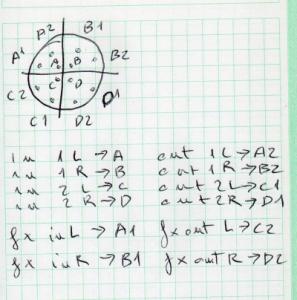 A2 B1
A1 A B B2
C2 C D D1
C1 D2
in 1 L → A out 1 L → A2
in 1 R → B out 1 R → B2
in 2 L → C out 2 L → C1
in 2 R → D out 2 R → D1
fx in L → A1 fx out L → C2
fx in R → B1 fx out R → D2